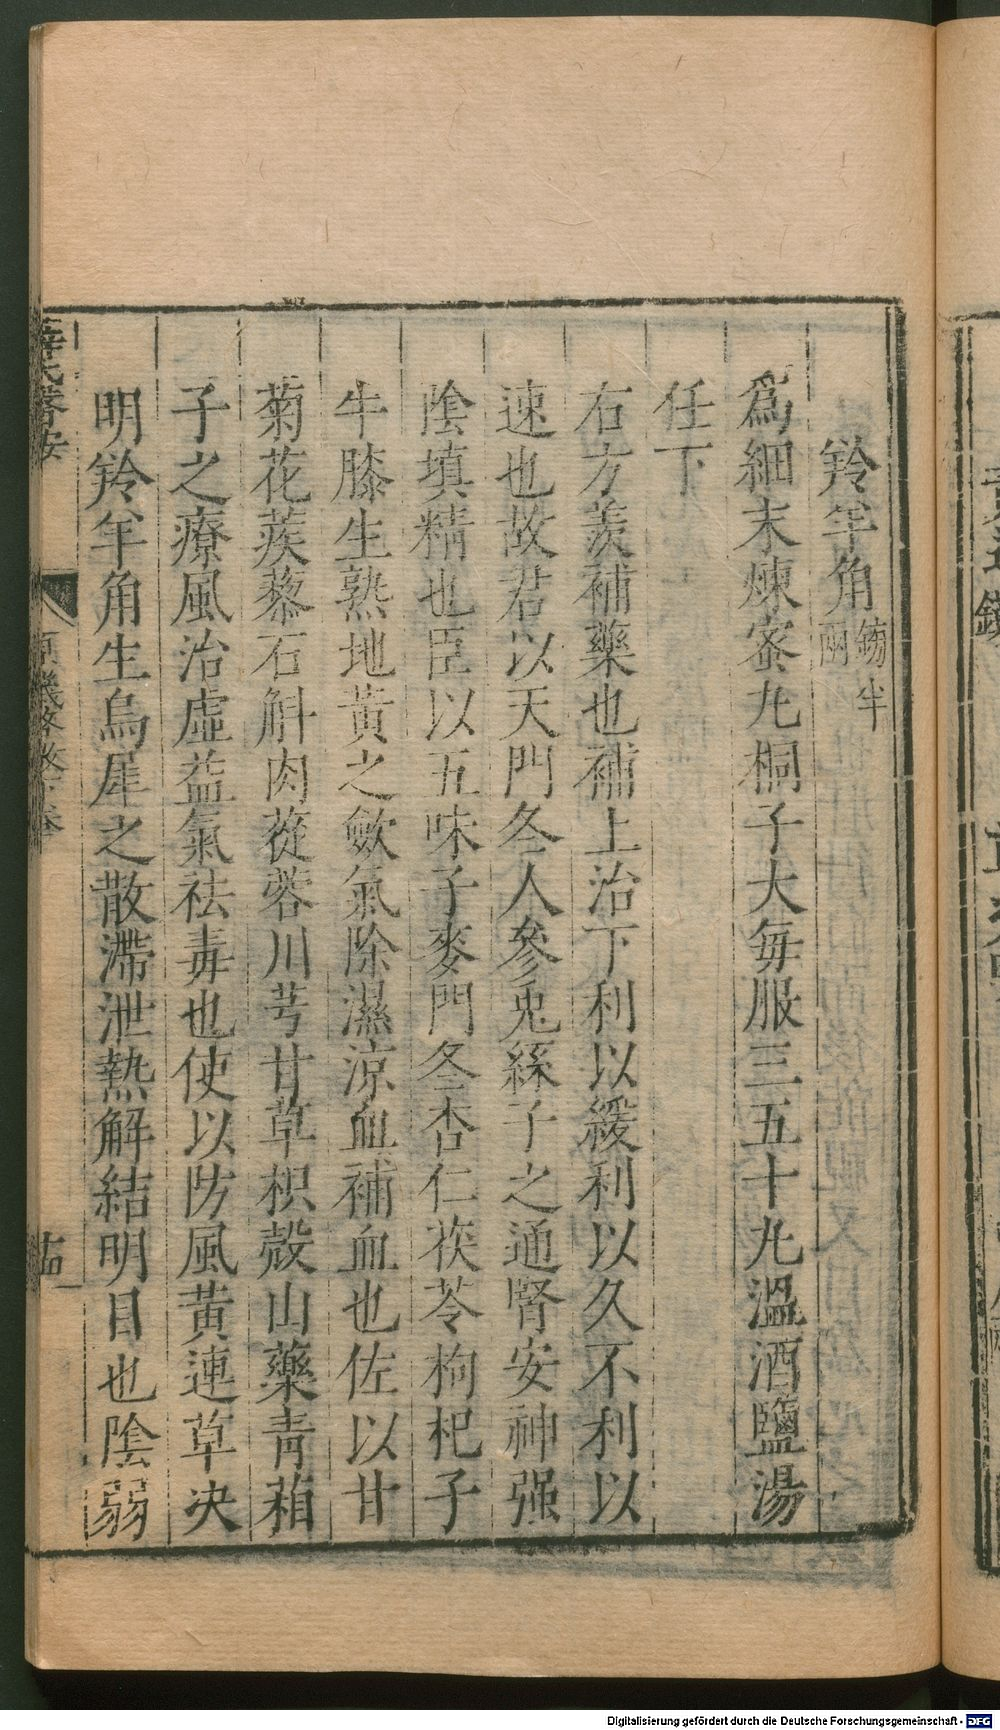 羚羊角鎊半兩
爲細末煉蜜丸桐子大每服三五十丸溫酒鹽湯
任下
右方羨補藥也補上治下利以緩利以久不利以
速也故君以天門冬人參兎絲子之通腎安神强
陰填精也臣以五味子麥門冬杏仁茯苓枸杞子
牛膝生熟地黃之斂氣除濕涼血補血也佐以甘
菊花蒺藜石斛肉蓯蓉川芎甘草枳殼山藥青葙
子之療風治虛益氣祛毒也使以防風黃連草决
明羚羊角生烏犀之散滯泄熱解結明目也陰弱
薛氏醫按
原機啓微下卷
Digitalisierung gefördert durch die Deutsche Forschungsgemeinschaft - DFG